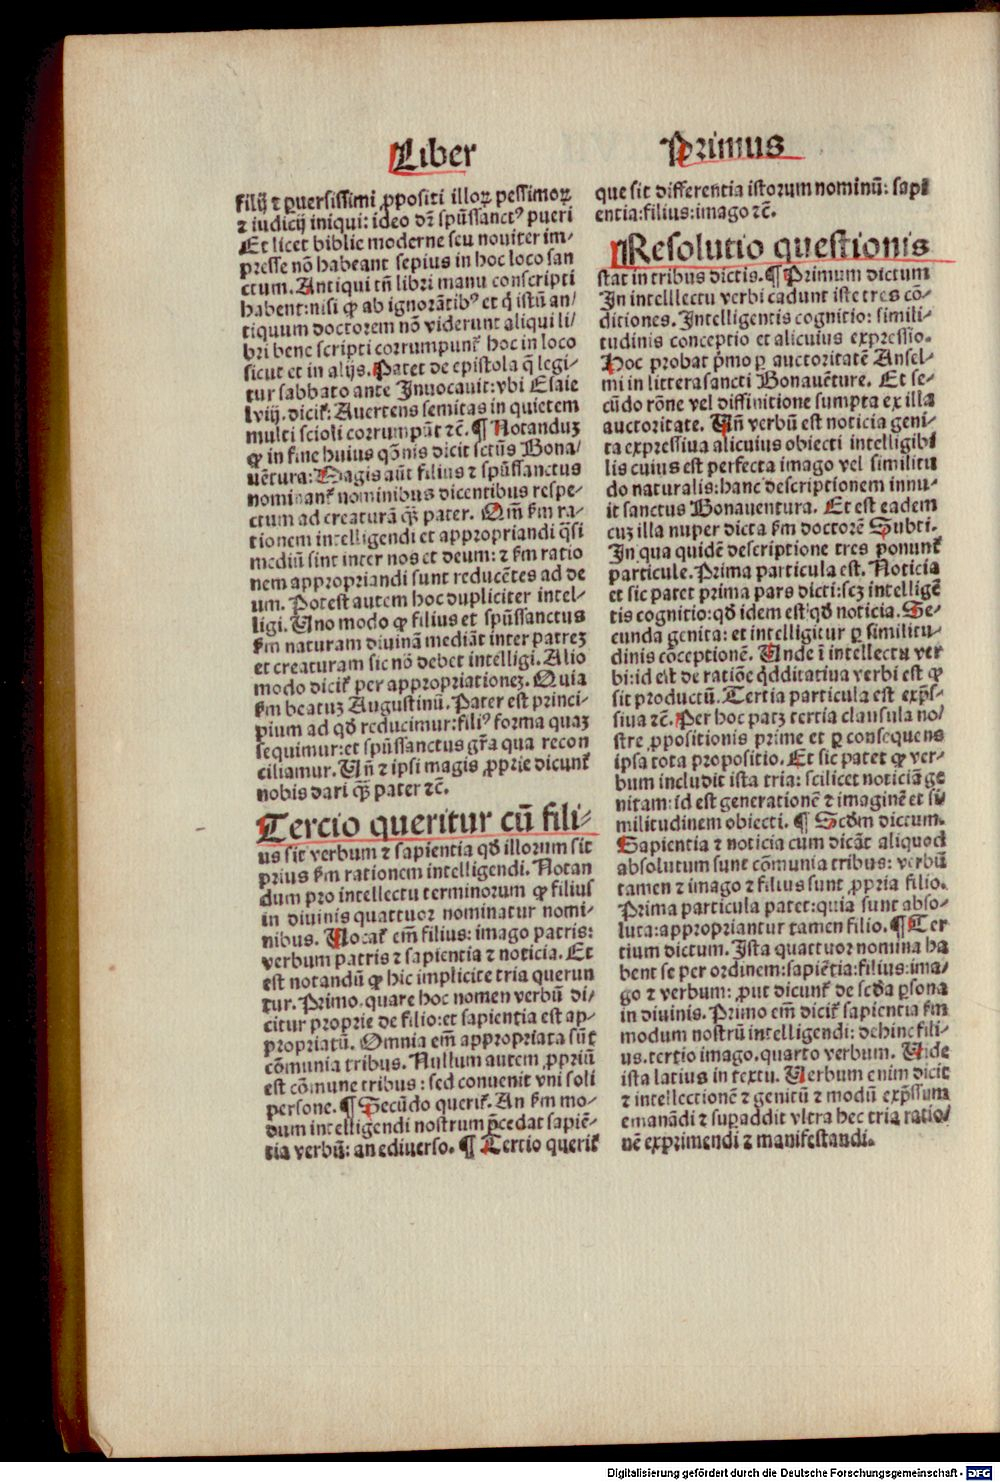 Liber Primus
filij ⁊ ꝑuersissimi ꝓpositi illoꝝ pessimoꝝ
⁊ iudicij iniqui: ideo dr̄ spūssanctꝰ pueri
Et licet biblie moderne seu nouiter im⸗
presse nō habeant sepius in hoc loco san
ctum. Antiqui tn̄ libri manu conscripti
habent: nisi ꝙ ab ignorātibꝰ et q̇ istū an⸗
tiquum doctorem nō viderunt aliqui li⸗
bri bene scripti corrumpunt̃ hoc in loco
sicut et in alijs. Patet de epistola q̄ legi⸗
tur sabbato ante Inuocauit: vbi Esaie
lviij. dicit̃: Auertens semitas in quietem
multi scioli corrumpūt ⁊c̄. ¶ Notanduꝫ
ꝙ in fine huius qōnis dicit sctūs Bona⸗
uētura: Magis aūt filius ⁊ spūssanctus
nominant̃ nominibus dicentibus respe⸗
ctum ad creaturā qꝫ̄ pater. Qm̄ ẜm ra⸗
tionem intelligendi et appropriandi q̄si
mediū sint inter nos et deum: ⁊ ẜm ratio
nem appropriandi sunt reducētes ad de
um. Potest autem hoc dupliciter intel⸗
ligi. Uno modo ꝙ filius et spūssanctus
ẜm naturam diuinā mediāt inter patreꝫ
et creaturam sic nō debet intelligi. Alio
modo dicit̃ per appropriationeꝫ. Quia
ẜm beatuꝫ Augustinū. Pater est princi⸗
pium ad qḋ reducimur: filiꝰ forma quaꝫ
sequimur: et spūssanctus gr̄a qua recon
ciliamur. Un̄ ⁊ ipsi magis ꝓprie dicunt̃
nobis dari qꝫ̄ pater ⁊c̄.
Tercio queritur cū fili⸗
us sit verbum ⁊ sapientia qḋ illorum sit
prius ẜm rationem intelligendi. Notan
dum pro intellectu terminorum ꝙ filius
in diuinis quattuor nominatur nomi⸗
nibus. Uocat̃ em̄ filius: imago patris:
verbum patris ⁊ sapientia ⁊ noticia. Et
est notandū ꝙ hic implicite tria querun
tur. Primo. quare hoc nomen verbū di⸗
citur proprie de filio: et sapientia est ap⸗
propriatū. Omnia em̄ appropriata sūt
cōmunia tribus. Nullum autem ꝓpriū
est cōmune tribus: sed conuenit vni soli
persone. ¶ Secūdo querit̃. An ẜm mo⸗
dum intelligendi nostrum p̄cedat sapiē⸗
tia verbū: an ediuerso. ¶ Tertio querit̃
que sit differentia istorum nominū: sapi
entia: filius: imago ⁊c̄.
¶Resolutio questionis
stat in tribus dictis. ¶ Primum dictum
In intelllectu verbi cadunt iste tres cō⸗
ditiones. Intelligentis cognitio: simili⸗
tudinis conceptio et alicuius expressio.
Hoc probat p̄mo ꝑ auctoritatē Ansel⸗
mi in littera sancti Bonauēture. Et se⸗
cūdo rōne vel diffinitione sumpta ex illa
auctoritate. Un̄ verbū est noticia geni⸗
ta expressiua alicuius obiecti intelligibi
lis cuius est perfecta imago vel similitu
do naturalis: hanc descriptionem innu⸗
it sanctus Bonauentura. Et est eadem
cuꝫ illa nuper dicta ẜm doctorē Subti.
In qua quidē descriptione tres ponunt̃
particule. Prima particula est. Noticia
et sic patet prima pars dicti: scꝫ intelligē
tis cognitio: qḋ idem est qḋ noticia. Se⸗
cunda genita: et intelligitur ꝑ similitu⸗
dinis cōceptionē. Unde ī intellectu ver
bi: id est de ratiōe q̇dditatiua verbi est ꝙ
sit productū. Tertia particula est exp̄s⸗
siua ⁊c̄. Per hoc patꝫ tertia clausula no⸗
stre ꝓpositionis prime et ꝑ consequens
ipsa tota propositio. Et sic patet ꝙ ver⸗
bum includit ista tria: scilicet noticiā ge
nitam: id est generationē ⁊ imaginē et si⸗
militudinem obiecti. ¶ Scḋm dictum.
Sapientia ⁊ noticia cum dicāt aliquod
absolutum sunt cōmunia tribus: verbū
tamen ⁊ imago ⁊ filius sunt ꝓpria filio.
Prima particula patet: quia sunt abso⸗
luta: appropriantur tamen filio. ¶ Ter
tium dictum. Ista quattuor nomina ha
bent se per ordinem: sapiētia: filius: ima⸗
go ⁊ verbum: ꝓut dicunt̃ de scḋa ꝑsona
in diuinis. Primo em̄ dicit̃ sapientia ẜm
modum nostrū intelligendi: dehinc fili⸗
us. tertio imago. quarto verbum. Uide
ista latius in textu. Uerbum enim dicit
⁊ intellectionē ⁊ genitū ⁊ modū exp̄ssum
emanādi ⁊ suꝑaddit vltra hec tria ratio⸗
nē exprimendi ⁊ manifestandi.
Digitalisierung gefördert durch die Deutsche Forschungsgemeinschaft - DFG